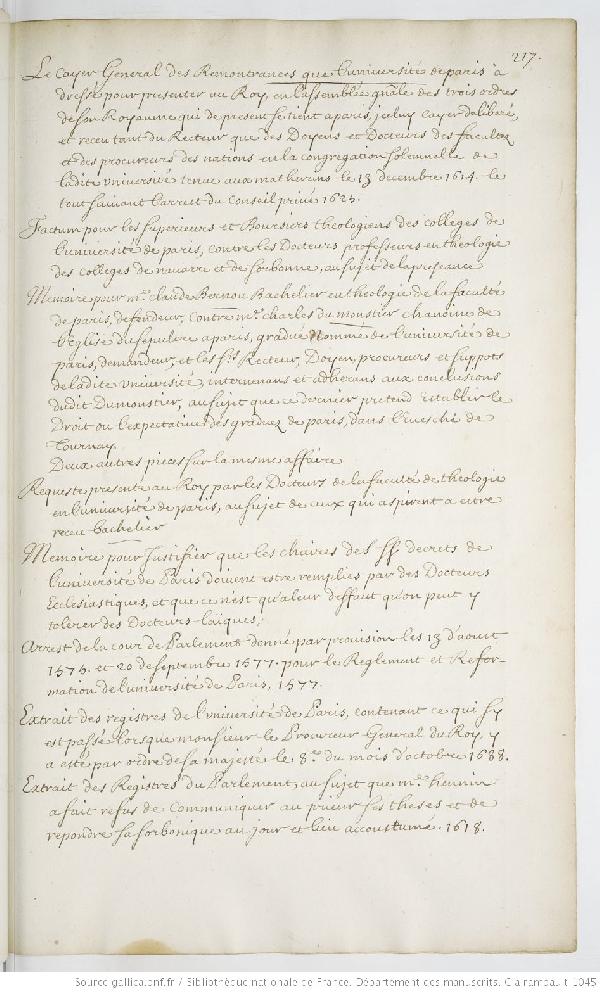 217.
Le Cayer General des Remontrances que l'université de paris a
dressé pour presenter au Roy, en l'assemblée gnãle des trois ordres
de son Royaume qui de present se tient a paris, iceluy cayer deliberé,
et receu tant du Recteur que des Doyens et Docteurs des facultez
et des procureurs des nations en la congregation solemnelle de
ladite université tenue aux matherins le 13 decembre 1614. le
tout suivant l'arrest du Conseil privé 1625.
Factum pour les superieurs et Boursiers theologiens des colleges de
l'université de paris, contre les Docteurs professeurs en theologie
des colleges de navarre et de sorbonne, au sujet de la preseance
Memoire pour mre. claude Bernou Bachelier en theologie de la faculté
de paris, defendeur, contre mre. charles du monstier chanoine de
l'Eglise du sepulcre a paris, gradué nommé de l'université de
paris, demandeur, et les srs. Recteur, Doyen, procureurs et suppots
de ladite université, intervenans et adherans aux conclusions
dudit Dumonstier, au sujet que ce dernier pretend establir le
Droit ou l'expectative des graduez de paris, dans l'evesché de
Tournay
Deux autres pieces sur la mesme affaire
Requeste presenté au Roy par les Docteurs de la faculté de theologie
en l'université de paris, au sujet de ceux qui aspirent a estre
receu bachelier
Memoire pour Justifier que les chaires des SS. decrets de
l'université de Paris doivent estre remplies par des Docteurs
Ecclesiastiques, et que ce n'est qu'a leur deffaut qu'on peut y
tolerer des Docteurs laïques,
Arrest de la cour de Parlement donné par provision les 13 d'aoust
1575. et 20 de septembre 1577. pour le Reglement et Refor-
mation de l'université de Paris, 1577.
Extrait des registres de l'université de Paris, contenant ce qui s'y
est passé lorsque monsieur le Procureur General du Roy, y
a esté par ordre de sa majesté le 8.me du mois d'octobre 1688.
Extrait des Registres du Parlement, au sujet que mre. hennin
a fait refus de Communiquer au prieur ses theses et de
repondre sa sorbonique au jour et lieu accoustumé. 1618.
Source gallica.bnf.fr / Bibliothèque nationale de France. Département des manuscrits. Clairambault 1045